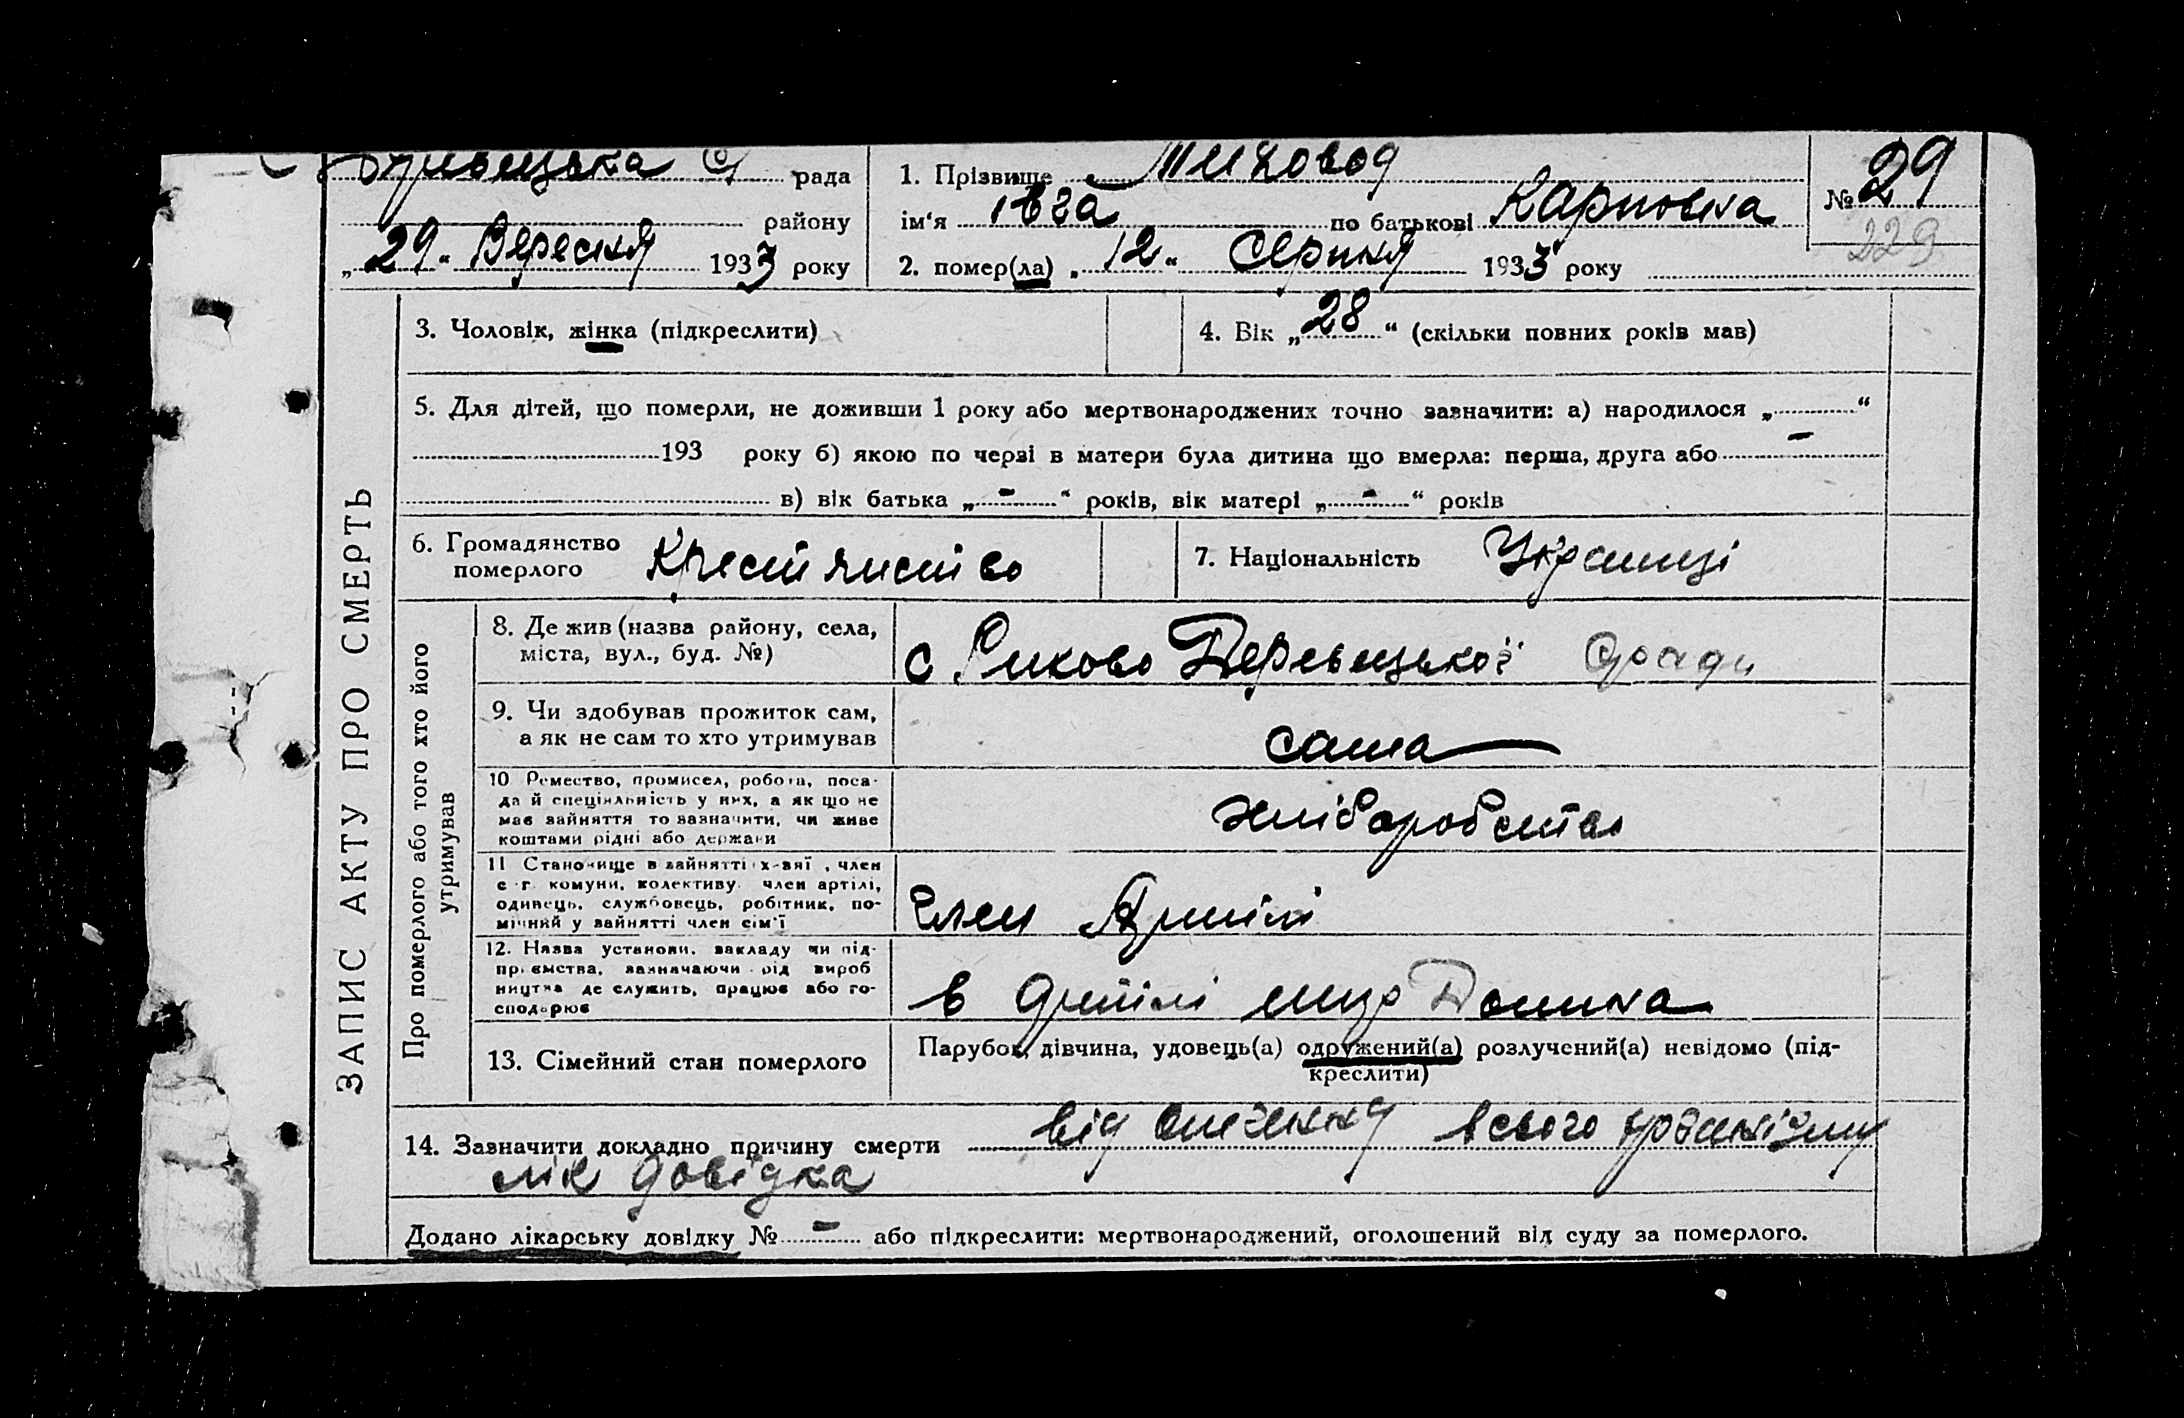 Деревецька С/ рада
1. Прізвище Тиховод
№ 29
району
ім'я Івга по батькові Карповна
229
„29“ Вересня 1933 року
2. помер(ла) „12“ Серпня 1933 року
ЗАПИС АКТУ ПРО СМЕРТЬ
3. Чоловік, жінка (підкреслити)
4. Вік „28“ (скільки повних років мав)
5. Для дітей, що померли, не доживши 1 року або мертвонароджених точно зазначити: а) народилося „ “
193 року б) якою по черзі в матери була дитина що вмерла: перша, друга або -
в) вік батька „-“ років, вік матері „-“ років
6. Громадянство
померлого
7. Національність Українці
Про померлого або того хто його
утримував
8. Де жив (назва району, села,
міста, вул., буд. №)
с Деревецької С/ради
9. Чи здобував прожиток сам,
а як не сам то хто утримував
сама
10 Ремество, промисел, робота, поса-
да й спеціяльність у них, а як що не
має зайняття то зазначити, чи живе
коштами рідні або держави
хліборобство
11 Становище в зайнятті х-вяї, член
с-г. комуни, колективу член артілі,
одинець, службовець, робітник, по-
мічний у зайнятті член сім'ї
Член Артілі
12. Назва установи, закладу чи під-
приємства, зазначаючи рід вироб
ництва де служить, працює або го-
сподарює
в Артілі
13. Сімейний стан померлого
Парубок, дівчина, удовець(а) одружений(а) розлучений(а) невідомо (під-
креслити)
14. Зазначити докладно причину смерти від всього організму
лік довідка
Додано лікарську довідку № - або підкреслити: мертвонароджений, оголошений від суду за померлого.